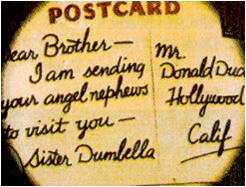 POSTCARD
Dear Brother—
I am sending
your angel nephews
to visit you—
Sister Dumbella
Mr.
Donald Duc
Hollywood
Calif